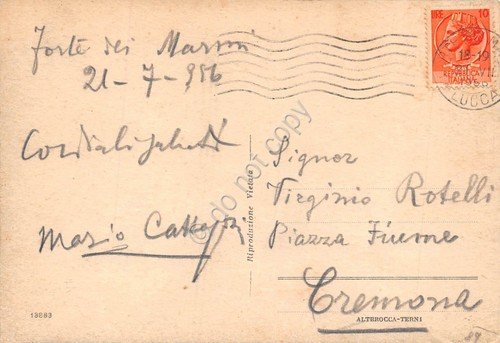 Forte dei Marmi
21-7-956
Cordiali saluti
Mario
Signor
Virginio Rotelli
Piazza Fiume
Cremona
LIRE 10
18-19
REPUBBLICA
ITALIANA
LUCCA
Riproduzione Vietata
13883
ALTEROCCA-TERNI
do not copy